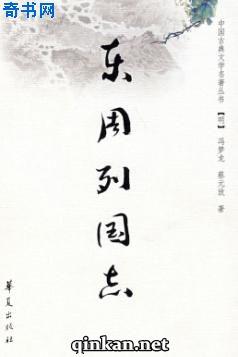 奇书网
东周列国志
中国古典文学名著丛书
【明】 冯梦龙 蔡元放 著
华夏出版社
qinkan.net